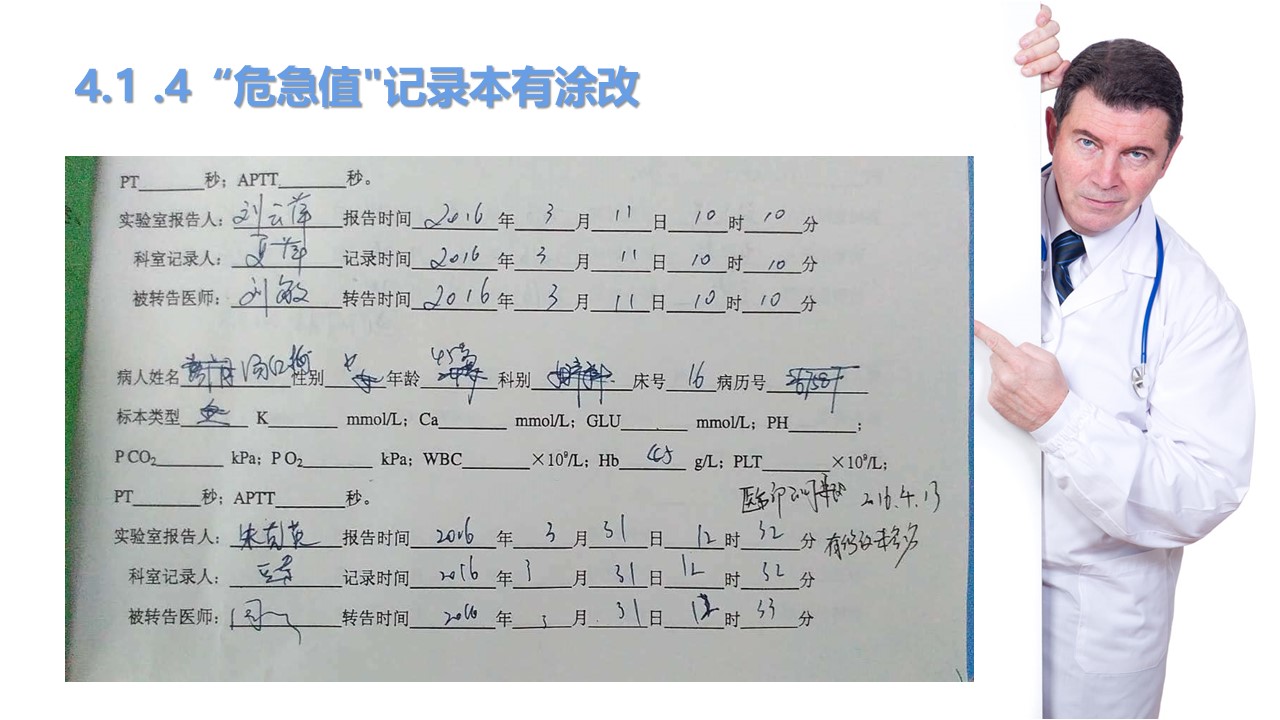 4.1 .4 “危急值"记录本有涂改
PT______秒；APTT______秒。
实验室报告人：刘云萍 报告时间 2016 年 3 月 11 日 10 时 10 分
科室记录人： 记录时间 2016 年 3 月 11 日 10 时 10 分
被转告医师：刘敏 转告时间 2016 年 3 月 11 日 10 时 10 分
病人姓名 性别 年龄 科别 床号 16 病历号
标本类型 血 K______ mmol/L；Ca______ mmol/L；GLU______ mmol/L；PH______；
P CO₂______ kPa；P O₂______ kPa；WBC______×10⁹/L；Hb 45 g/L；PLT______×10⁹/L；
2016.4.13
PT______秒；APTT______秒。
实验室报告人： 报告时间 2016 年 3 月 31 日 12 时 32 分
科室记录人： 记录时间 2016 年 3 月 31 日 12 时 32 分
被转告医师： 转告时间 2016 年 3 月 31 日 时 33 分